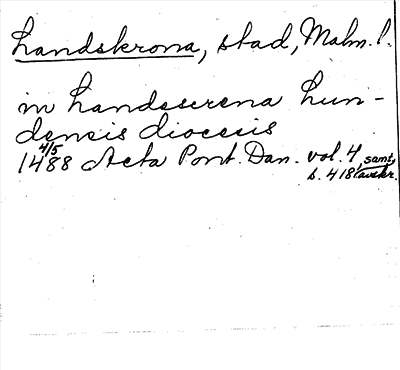 Landskrona, stad, Malm. l.
in Landsscrena Lun-
densis diocesis
4/5
1488 Acta Pont. Dan. vol. 4, samt.
s. 418. avskr.